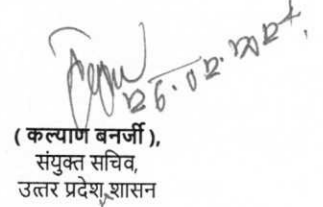 26.02.2024
( कल्याण बनर्जी ),
संयुक्त सचिव,
उत्तर प्रदेश शासन